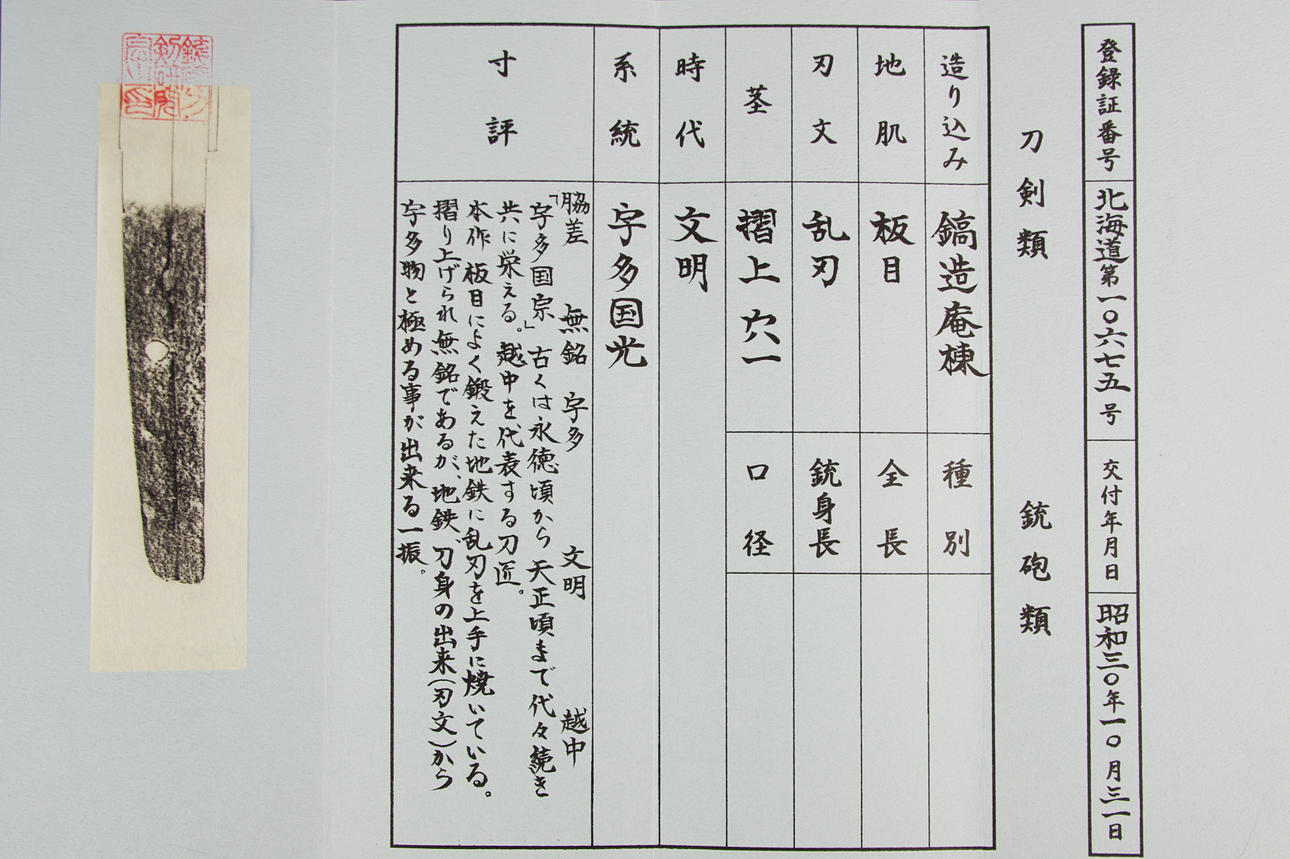 登録証番号 北海道第一〇六七五号 交付年月日 昭和三〇年一〇月三一日
刀剣類 銃砲類
造り込み 鎬造庵棟 種別
地肌 板目 全長
刃文 乱刃 銃身長
茎 摺上 穴一 口径
時代 文明
系統 宇多国光
寸評
脇差 無銘 宇多 文明 越中
「宇多国宗」古くは永徳頃から天正頃まで代々続き
共に栄える。越中を代表する刀匠。
本作 板目によく鍛えた地鉄に乱刃を上手に焼いている。
摺り上げられ無銘であるが、地鉄、刀身の出来(刃文)から
宇多物と極める事が出来る一振。